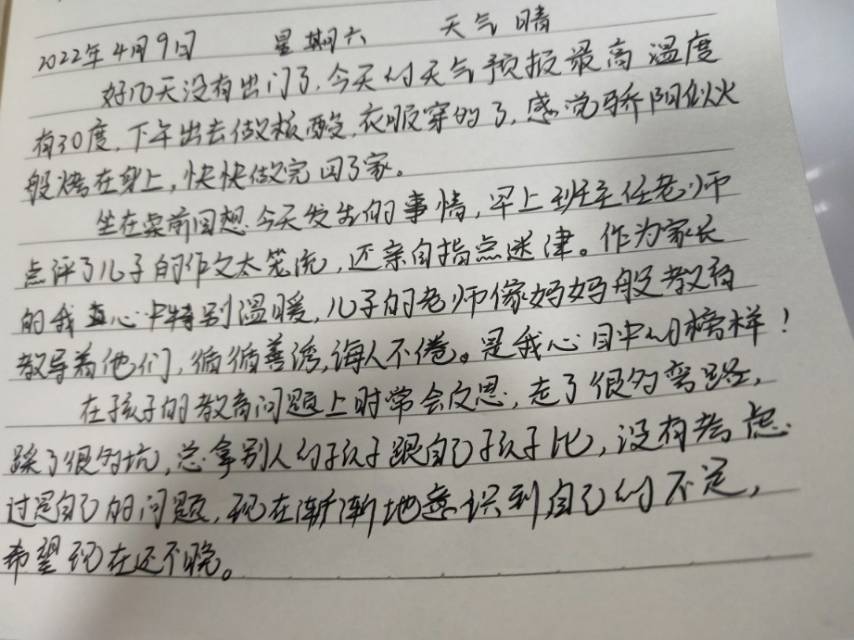 2022年4月9日 星期六 天气晴
好几天没有出门了,今天的天气预报最高温度
有30度,下午出去做核酸,衣服穿的了,感觉骄阳似火
般烤在身上,快快做完回了家。
坐在桌前回想今天发生的事情,早上班主任老师
点评了儿子的作文太笼统,还亲自指点迷津。作为家长
的我心中特别温暖,儿子的老师像妈妈般教育
教导着他们,循循善诱,诲人不倦。是我心目中的榜样!
在孩子的教育问题上时常会反思,走了很多弯路,
踩了很多坑,总拿别人的孩子跟自己孩子比,没有考虑
过是自己的问题,现在渐渐地意识到自己的不足,
希望现在还不晚。